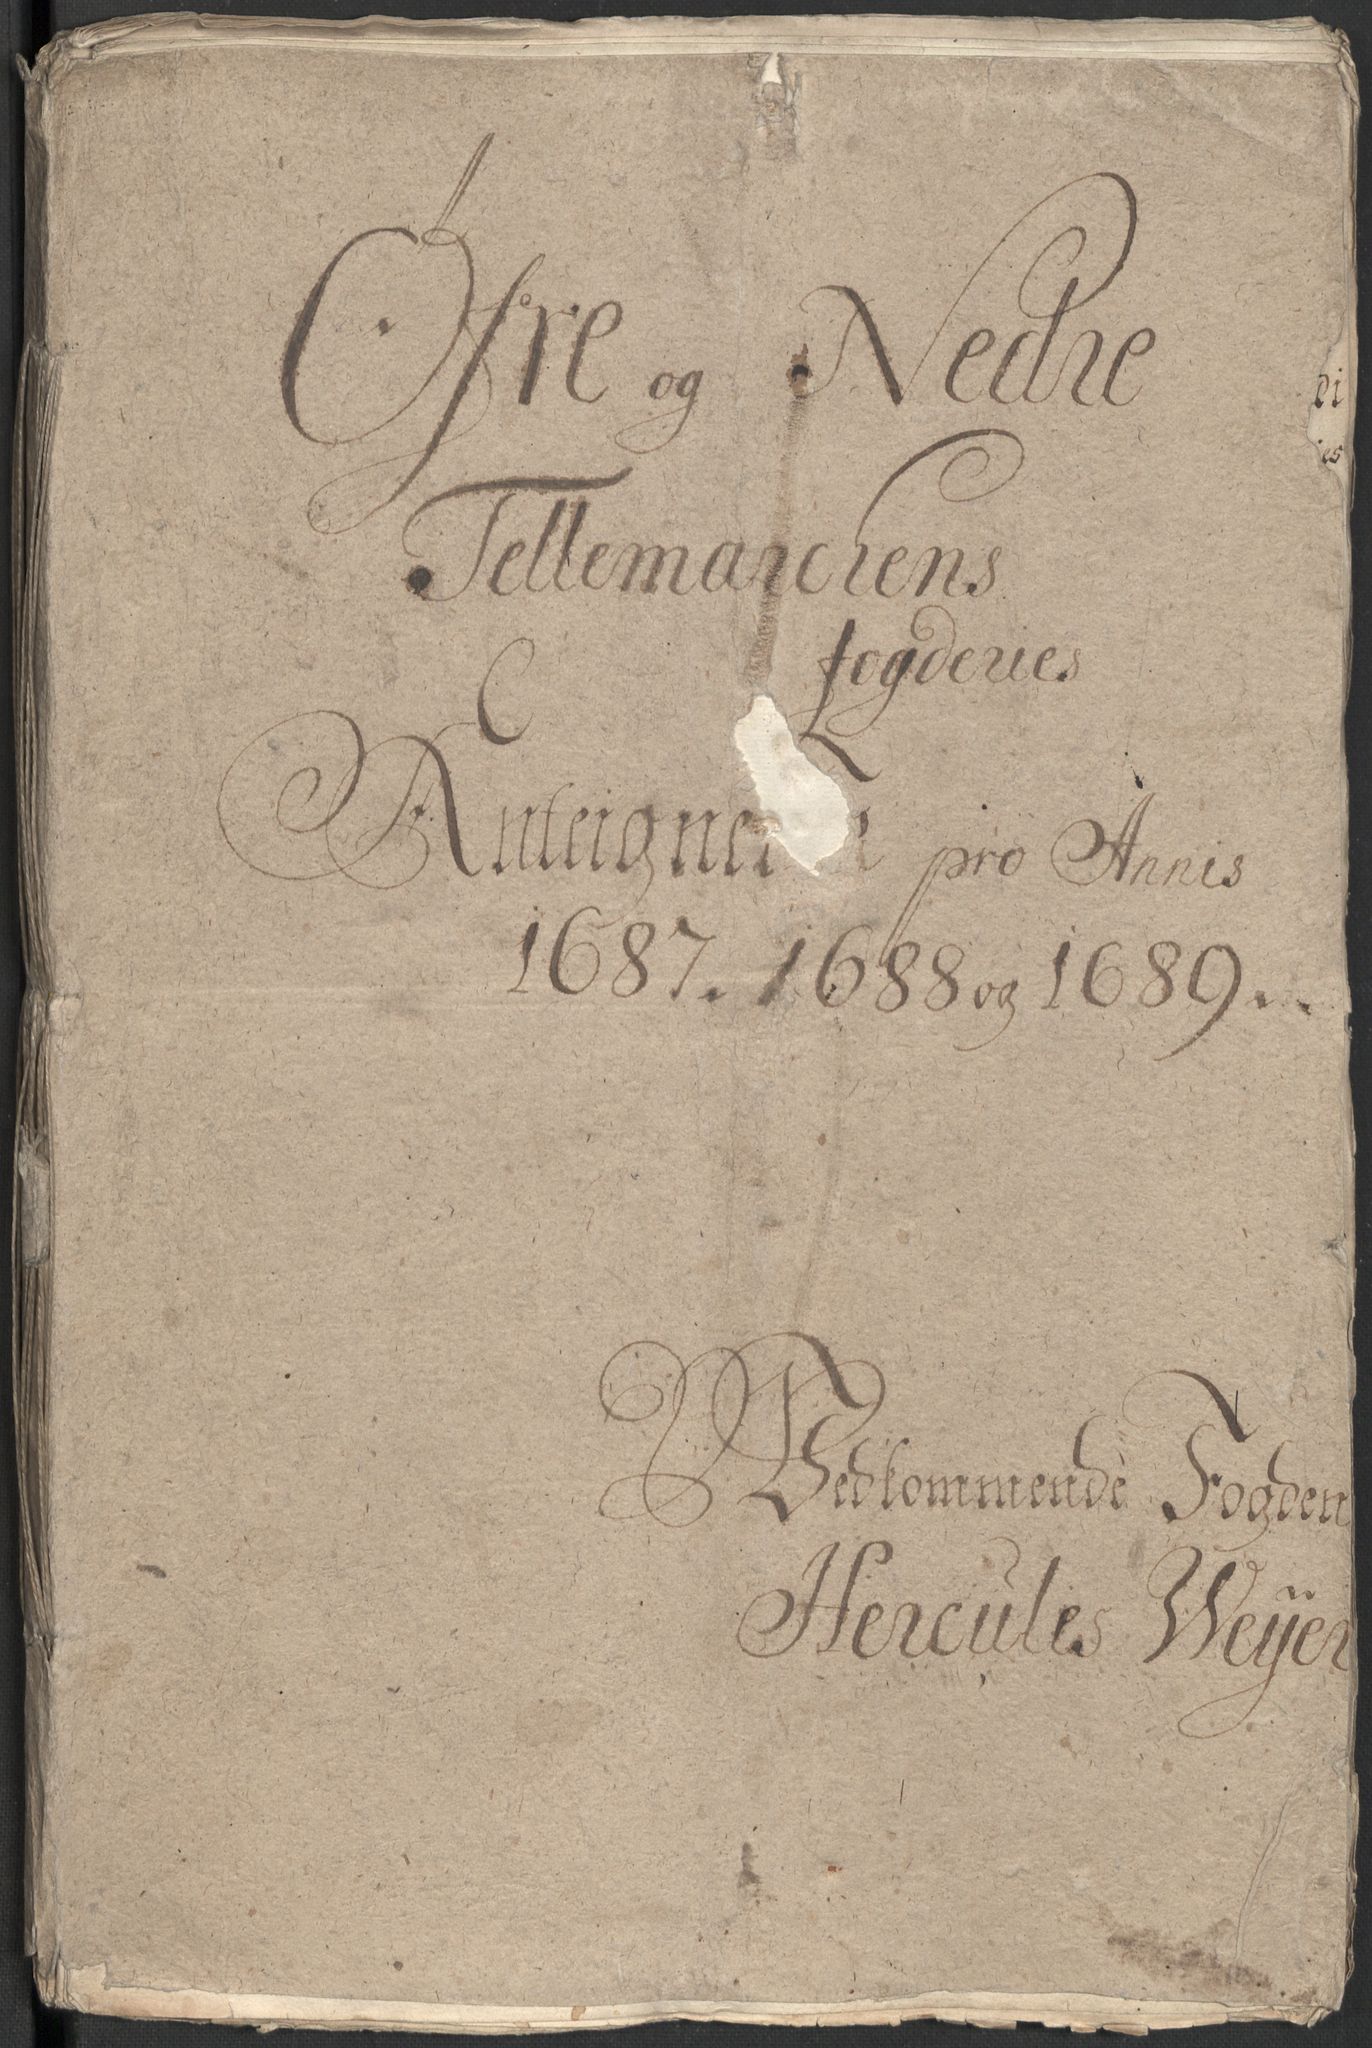 Øfre og Nedre
Tellemarckens
fogderies
pro Annis
1687. 1688 og 1689.
Vedkommende Fogden
Hercules Weÿer